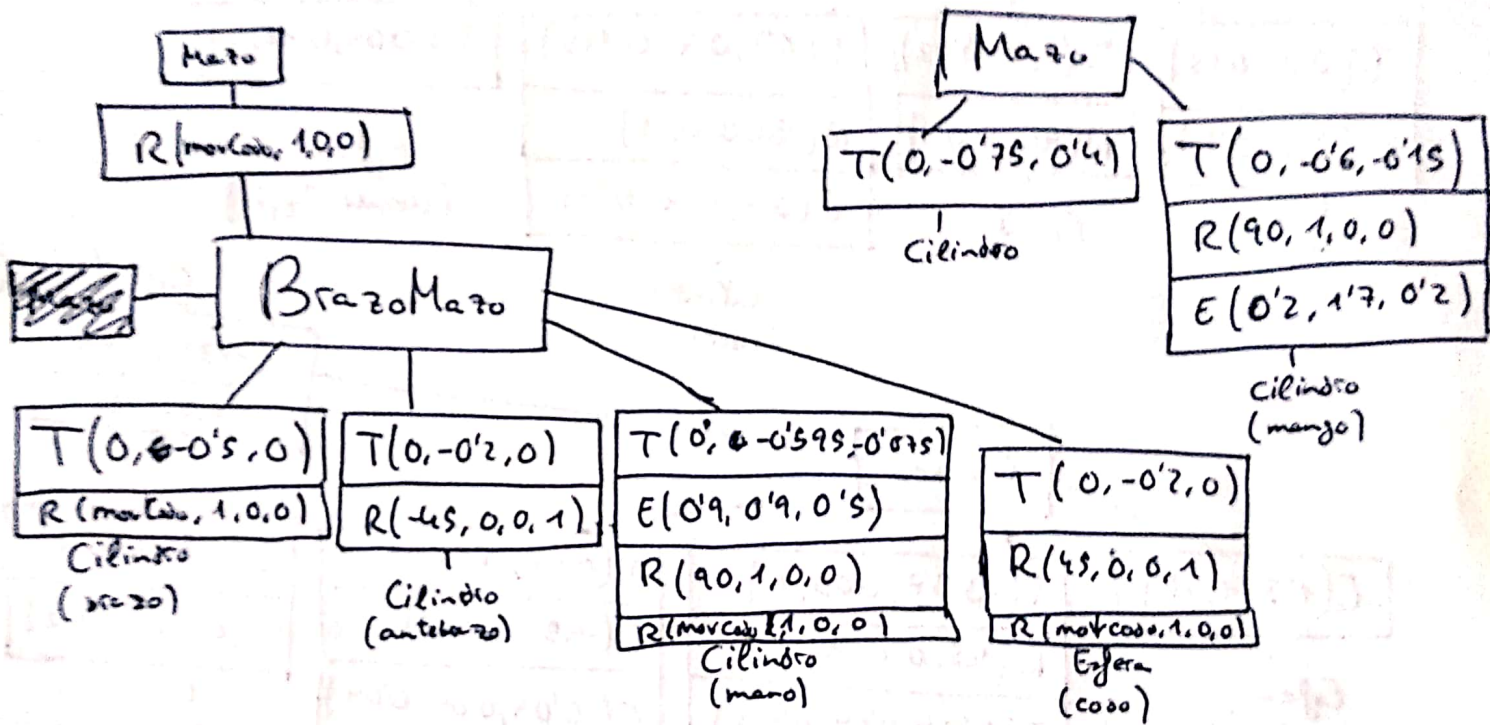 Mazo
R(movCodo, 1,0,0)
BrazoMazo
T(0, -0'5, 0)
R(movCodo, 1,0,0)
Cilindro
(brazo)
T(0,-0'2,0)
R(-45, 0, 0, 1)
Cilindro
(antebrazo)
T(0, -0'595,-0'075)
E(0'9, 0'9, 0'5)
R(90,1,0,0)
R(movCodo, 1,0,0)
Cilindro
(mano)
T(0,-0'2,0)
R(45,0,0,1)
R(movCodo,1,0,0)
Esfera
(codo)
Mazo
T(0,-0'75, 0'4)
Cilindro
T(0, -0'6,-0'15)
R(90, 1,0,0)
E(0'2, 1'7, 0'2)
Cilindro
(mango)